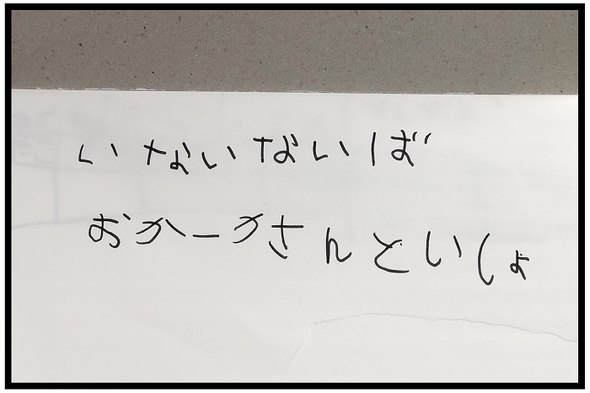 いないないば
おかーかさんといしょ